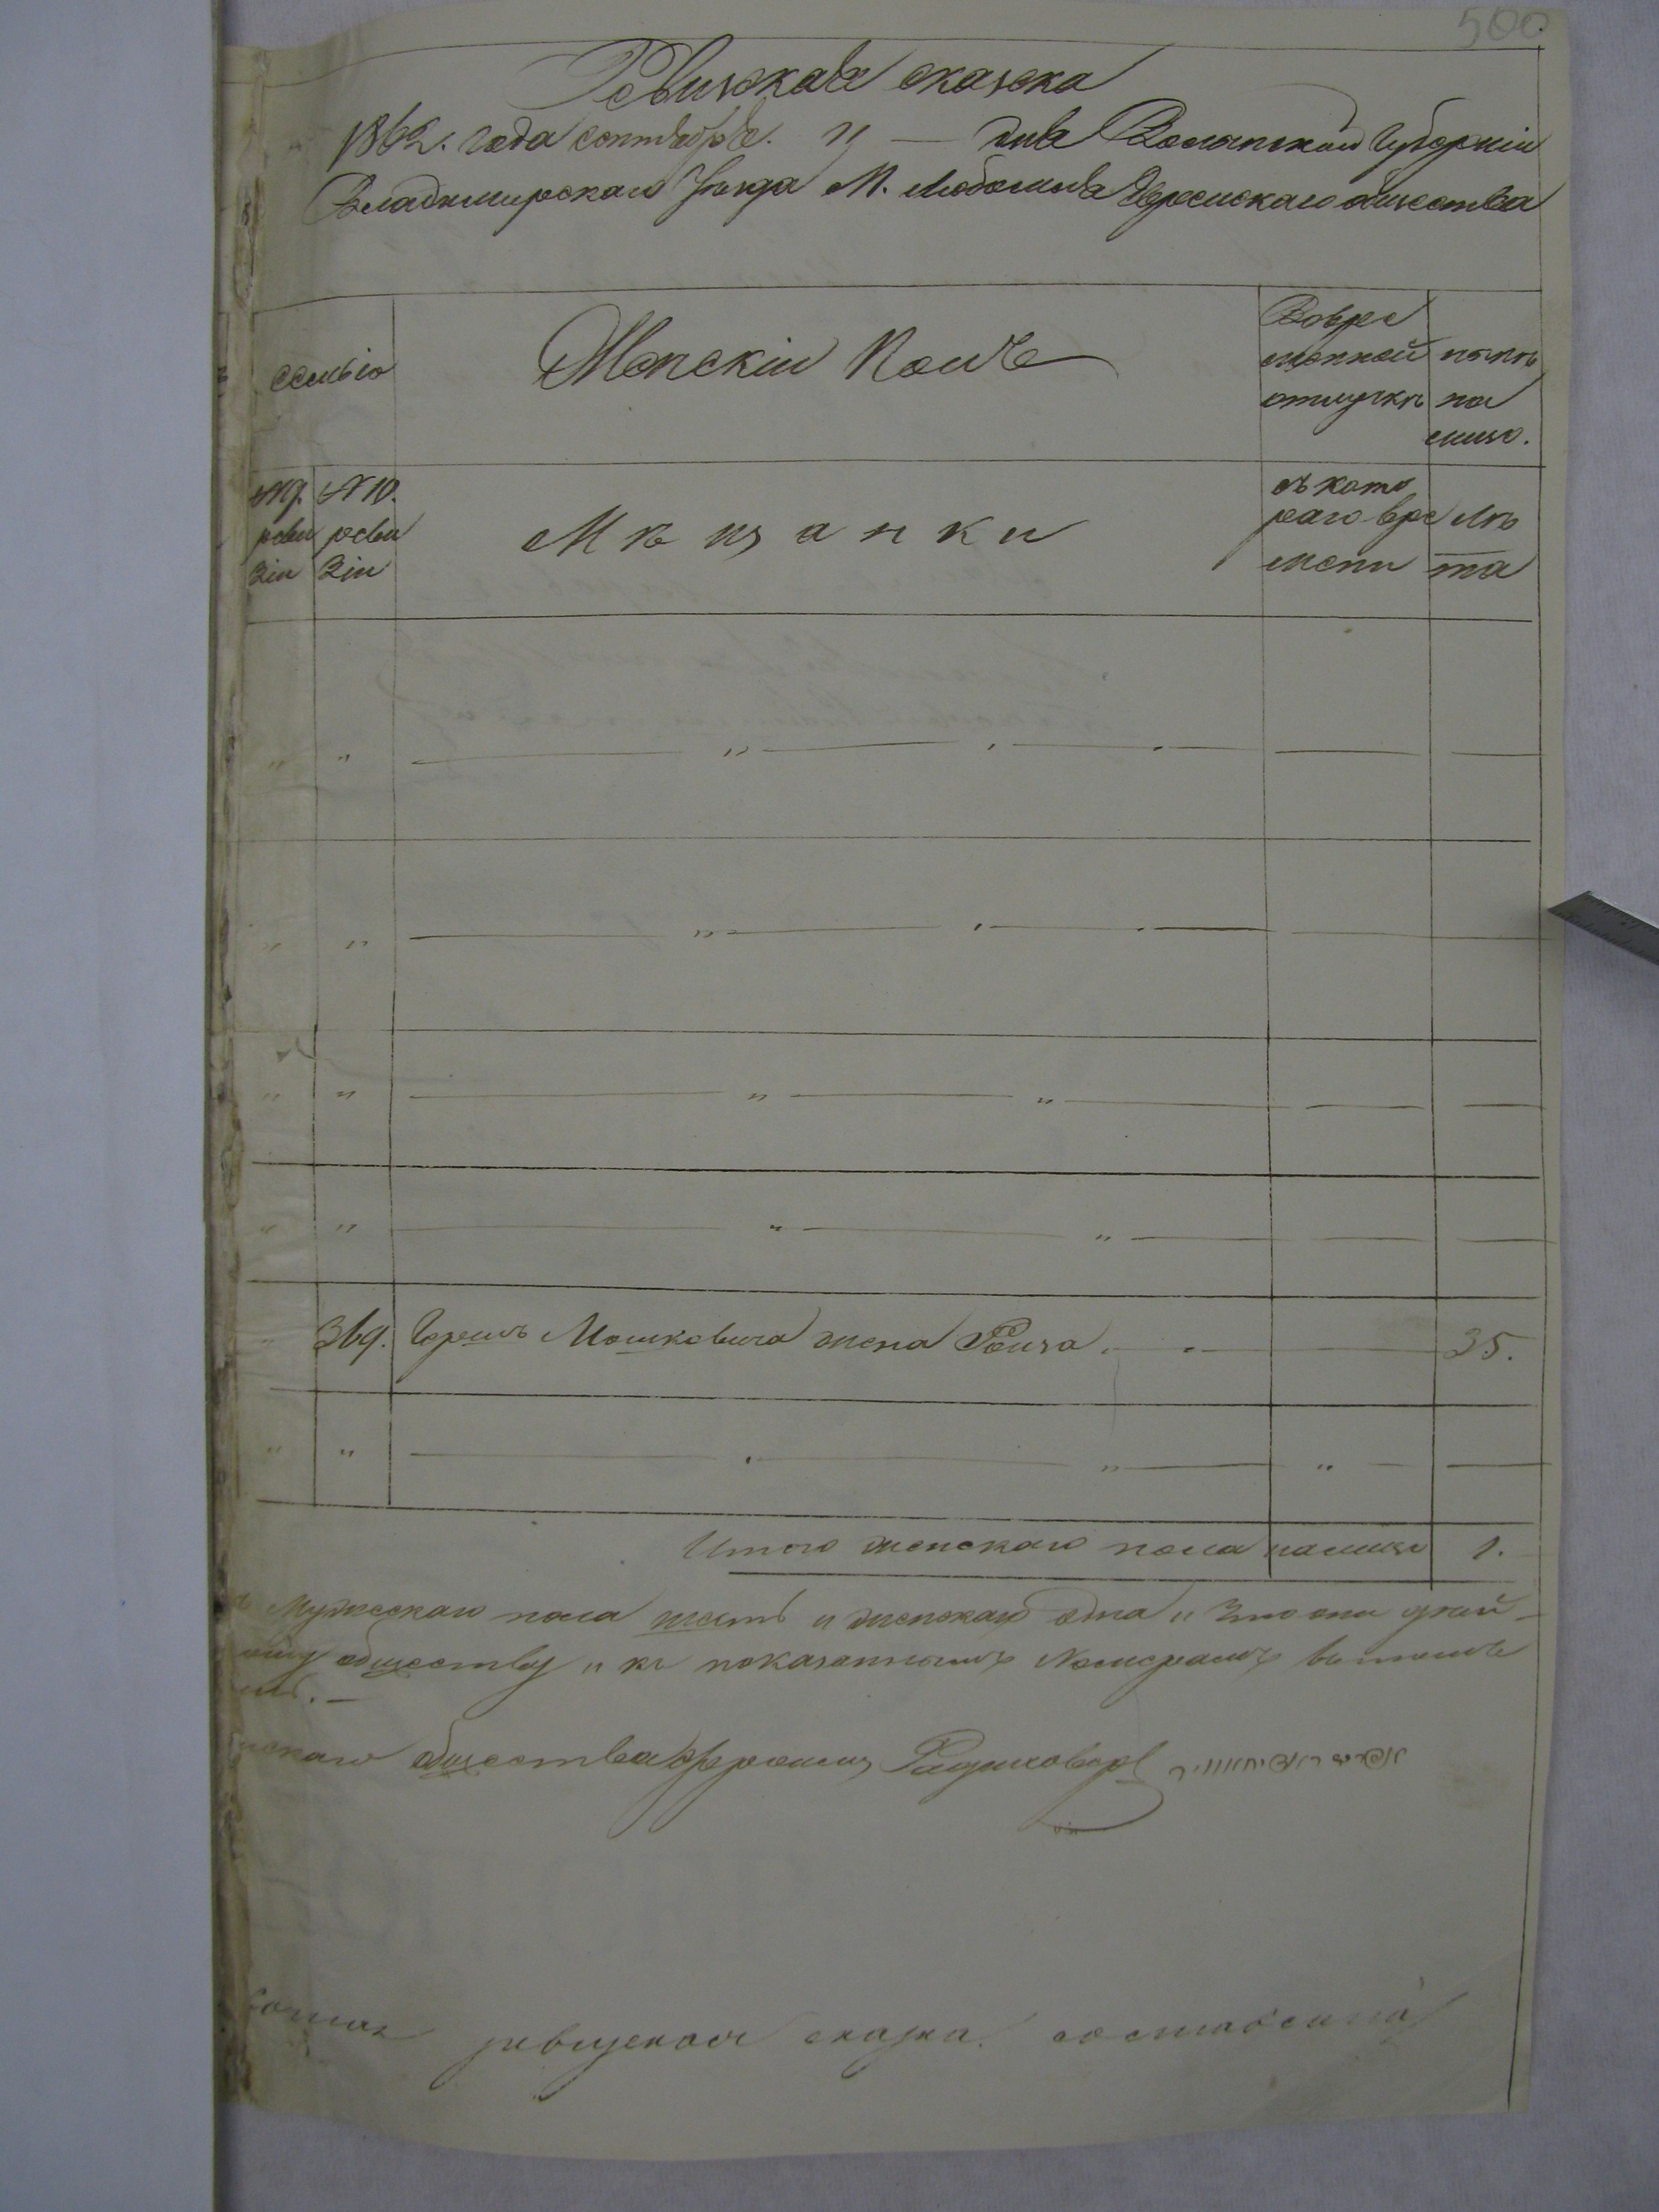 500
Ревизкая сказка
1862. года сентября. — дня Волынской Губерніи
Владимирскаго уѣзда М. Любомля Еврейскаго общества
семью
Женскій Полъ
Вовре
менной
отлучкѣ
нынѣ
на
лицо.
№ 9.
реви
зіи
№ 10.
реви
зіи
Мѣщанки
съ кото
раго вре
мени
лѣ
та
369. Герша Мошковича жена Рейза 35.
Итого женскаго пола налицо 1.
Мужескаго пола шесть и женскаго одна и что они
обществу и къ показаннымъ Номерамъ
скаго общества
ревизская сказка составлена